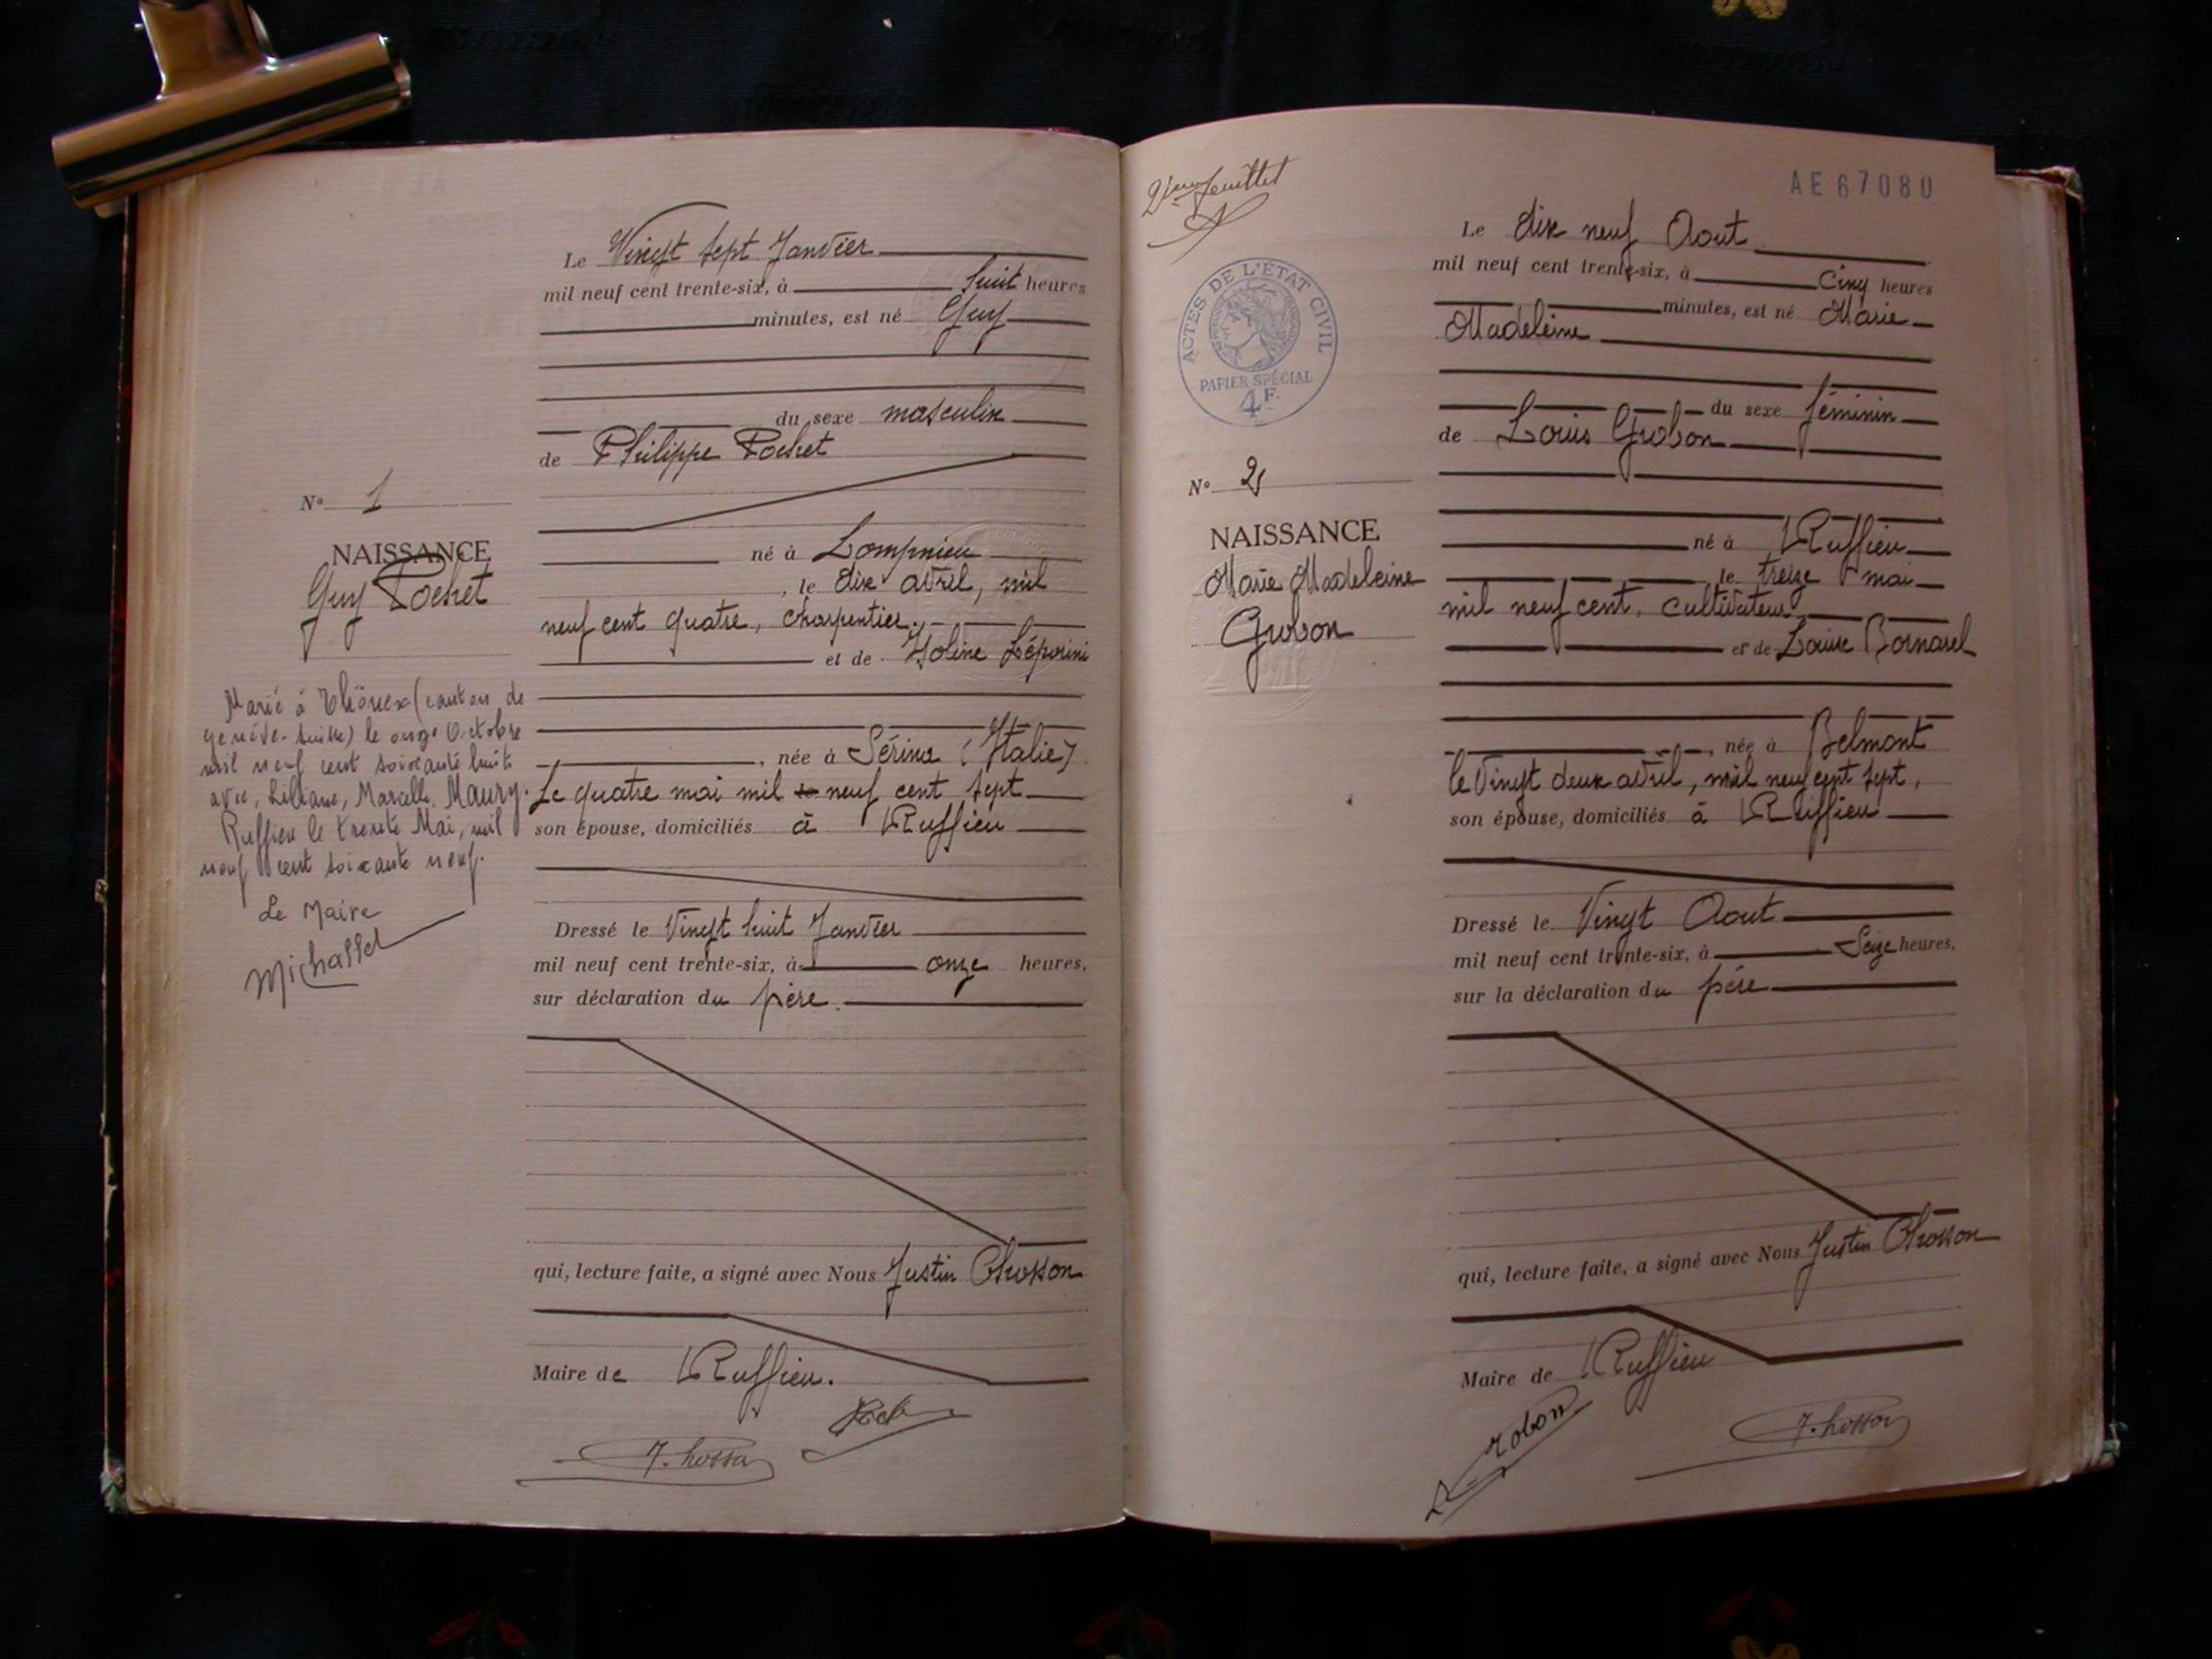 Le Vingt sept Janvier
mil neuf cent trente-six, à huit heures
minutes, est né Guy
du sexe masculin
de Philippe Pochet
N° 1
NAISSANCE
Guy Pochet
né à Lompnieu
, le dix avril, mil
neuf cent quatre, charpentier.
et de Yoline Léporini
, née à Sérina (Italie)
le quatre mai mil neuf cent sept
son épouse, domiciliés à Ruffieu
Marié à Thônex (canton de
genève-suisse) le onze Octobre
mil neuf cent soixante huit
avec, Liliane, Marcelle Maury.
Ruffieu le trente Mai, mil
neuf cent soixante neuf.
Le Maire
Michassel
Dressé le Vingt huit Janvier
mil neuf cent trente-six, à onze heures,
sur déclaration du père.
qui, lecture faite, a signé avec Nous Justin Chosson
Maire de Ruffieu.
J. hosson
2ième feuillet
AE 67080
ACTES DE L'ÉTAT CIVIL
PAPIER SPÉCIAL
4F.
Le dix neuf Aout
mil neuf cent trente-six, à Cinq heures
minutes, est né Marie
Madeleine
du sexe féminin
de Louis Grobon
N° 2
NAISSANCE
Marie Madeleine
Grobon
né à Ruffieu
le treize mai
mil neuf cent, cultivateur
et de Louise Bornarel
, née à Belmont
le Vingt deux avril, mil neuf cent sept,
son épouse, domiciliés à Ruffieu
Dressé le Vingt Aout
mil neuf cent trente-six, à Seize heures,
sur la déclaration du père
qui, lecture faite, a signé avec Nous Justin Chosson
Maire de Ruffieu
Grobon
J. hosson